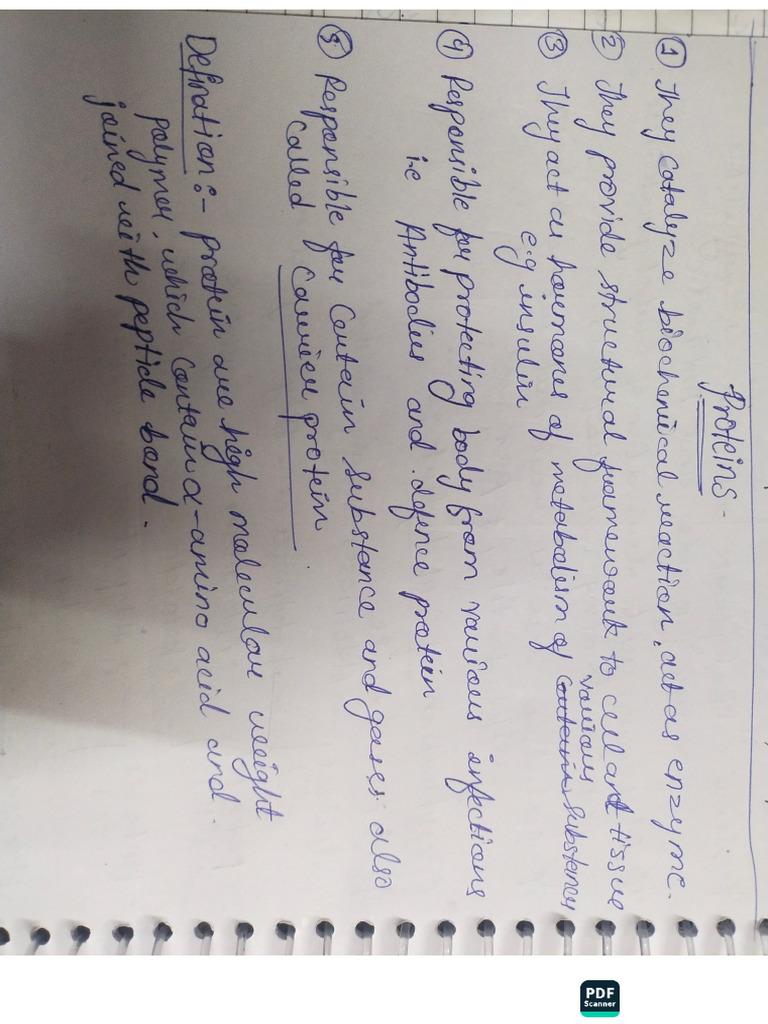 Proteins -
① They catalyze biochemical reaction, act as enzyme.
② They provide structural framework to cell and tissue
③ They act as hormones of metebolism of various substances
e.g insulin
④ Responsible for protecting body from various infections
i.e Antibodies and defence protein
⑤ Responsible for Contain substance and gases also
called Carrier protein.
Defination:- protein are high molecular weight
polymer, which Contain α-amino acid and
joined with peptide bond.
PDF
Scanner